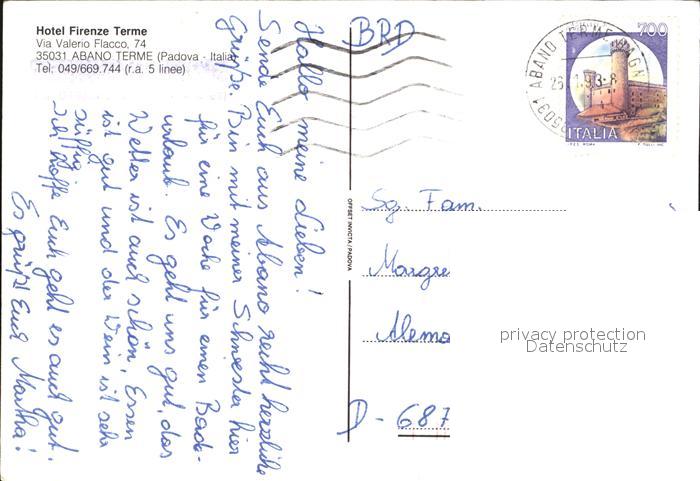 Hotel Firenze Terme
Via Valerio Flacco, 74
35031 ABANO TERME (Padova - Italia)
Tel. 049/669.744 (r.a. 5 linee)
Hallo meine Lieben!
Sende Euch aus Abano recht herzliche
Grüße. Bin mit meiner Schwester hier
für eine Woche für einen Bade-
urlaub. Es geht uns gut, das
Wetter ist auch schön, Essen
ist gut und der Wein ist sehr
süffig.
Ich hoffe Euch geht es auch gut.
Es grüßt Euch Martha!
OFFSET INVICTA/PADOVA
BRD
35031 ABANO TERME
700
ITALIA
I.P.Z.S. ROMA
Sg. Fam.
Margre
Alema
D - 687
privacy protection
Datenschutz